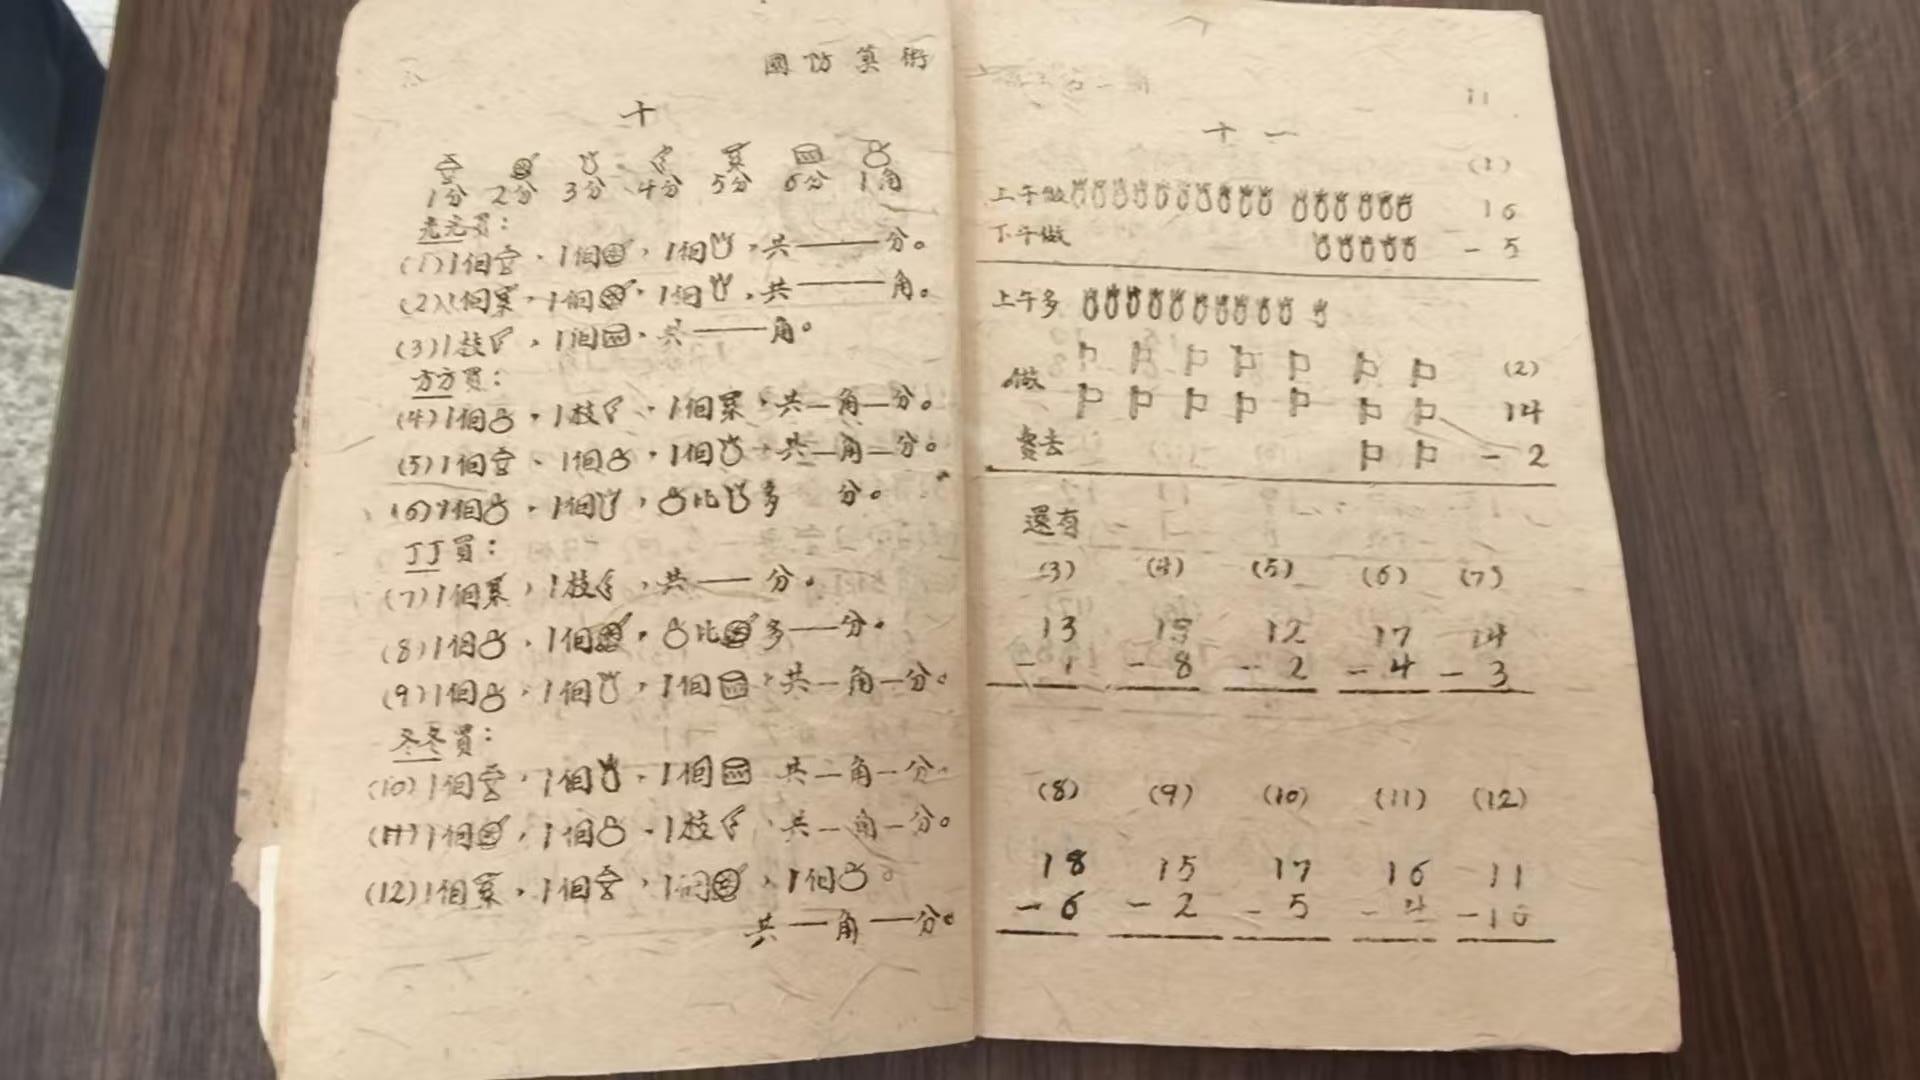 國防算術
十
1分 2分 3分 4分 5分 6分 1角
元元買：
(1)1個，1個，1個，共——分。
(2)1個，1個，1個，共——角。
(3)1枝，1個，共——角。
方方買：
(4)1個，1枝，1個，共—角—分。
(5)1個、1個，1個，共—角—分。
(6)1個，1個，比多 分。
丁丁買：
(7)1個，1枝，共——分。
(8)1個，1個，比多——分。
(9)1個，1個，1個，共—角—分。
冬冬買：
(10)1個，1個，1個 共—角—分。
(11)1個，1個、1枝，共—角—分。
(12)1個，1個，1個，1個。
共—角—分。
11
十一
(1)
上午做 16
下午做 - 5
上午多
(2)
做 14
賣去 - 2
還有
(3) (4) (5) (6) (7)
13 19 12 17 14
- 1 - 8 - 2 - 4 - 3
(8) (9) (10) (11) (12)
18 15 17 16 11
- 6 - 2 - 5 - 4 - 10